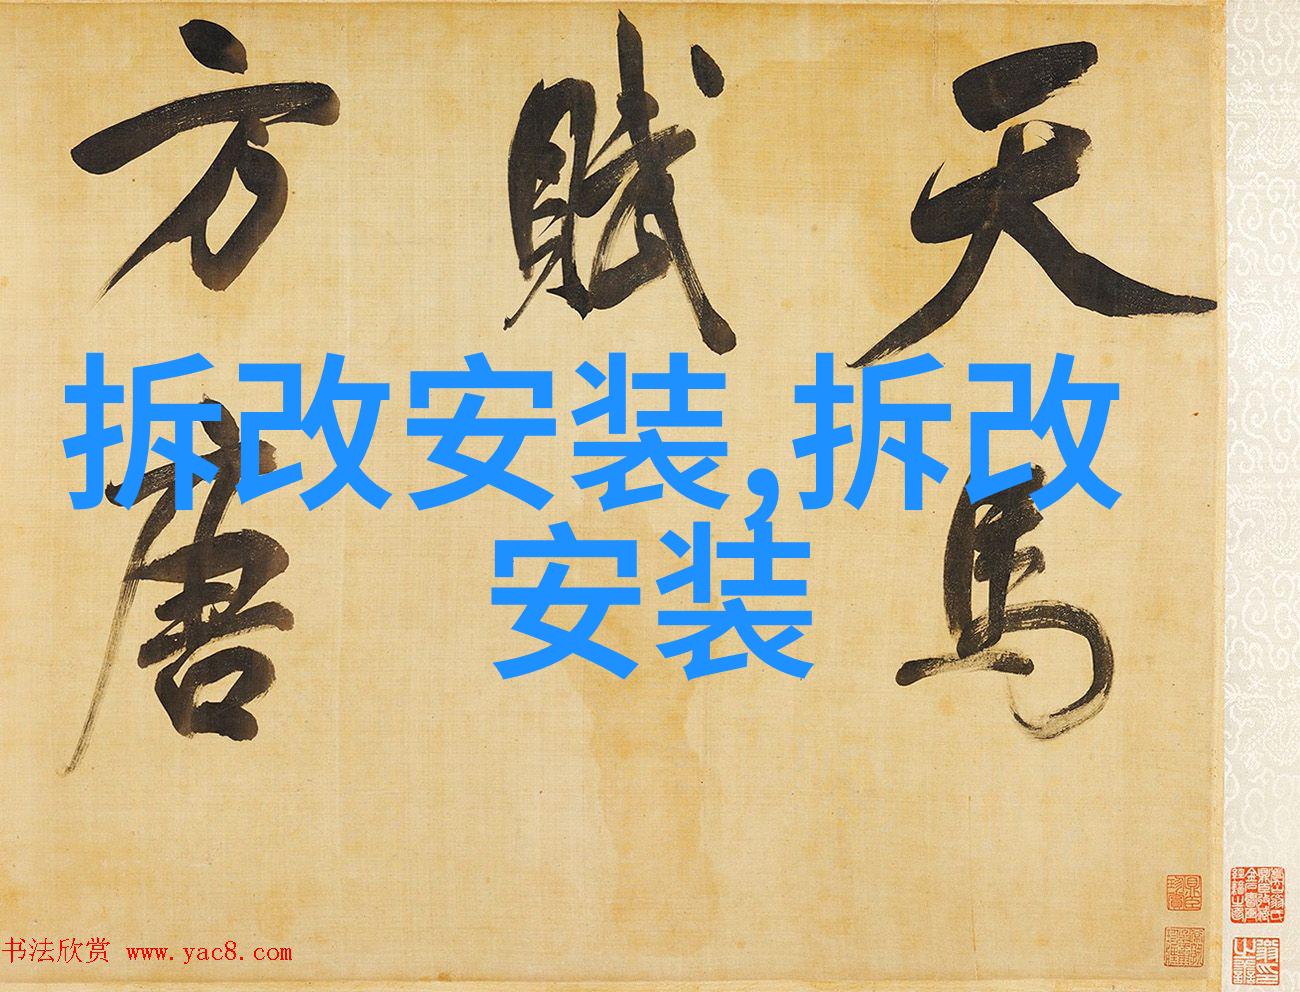 天马
赋
方唐
拆改安装,拆改
安装
书法欣赏 www.yac8.com